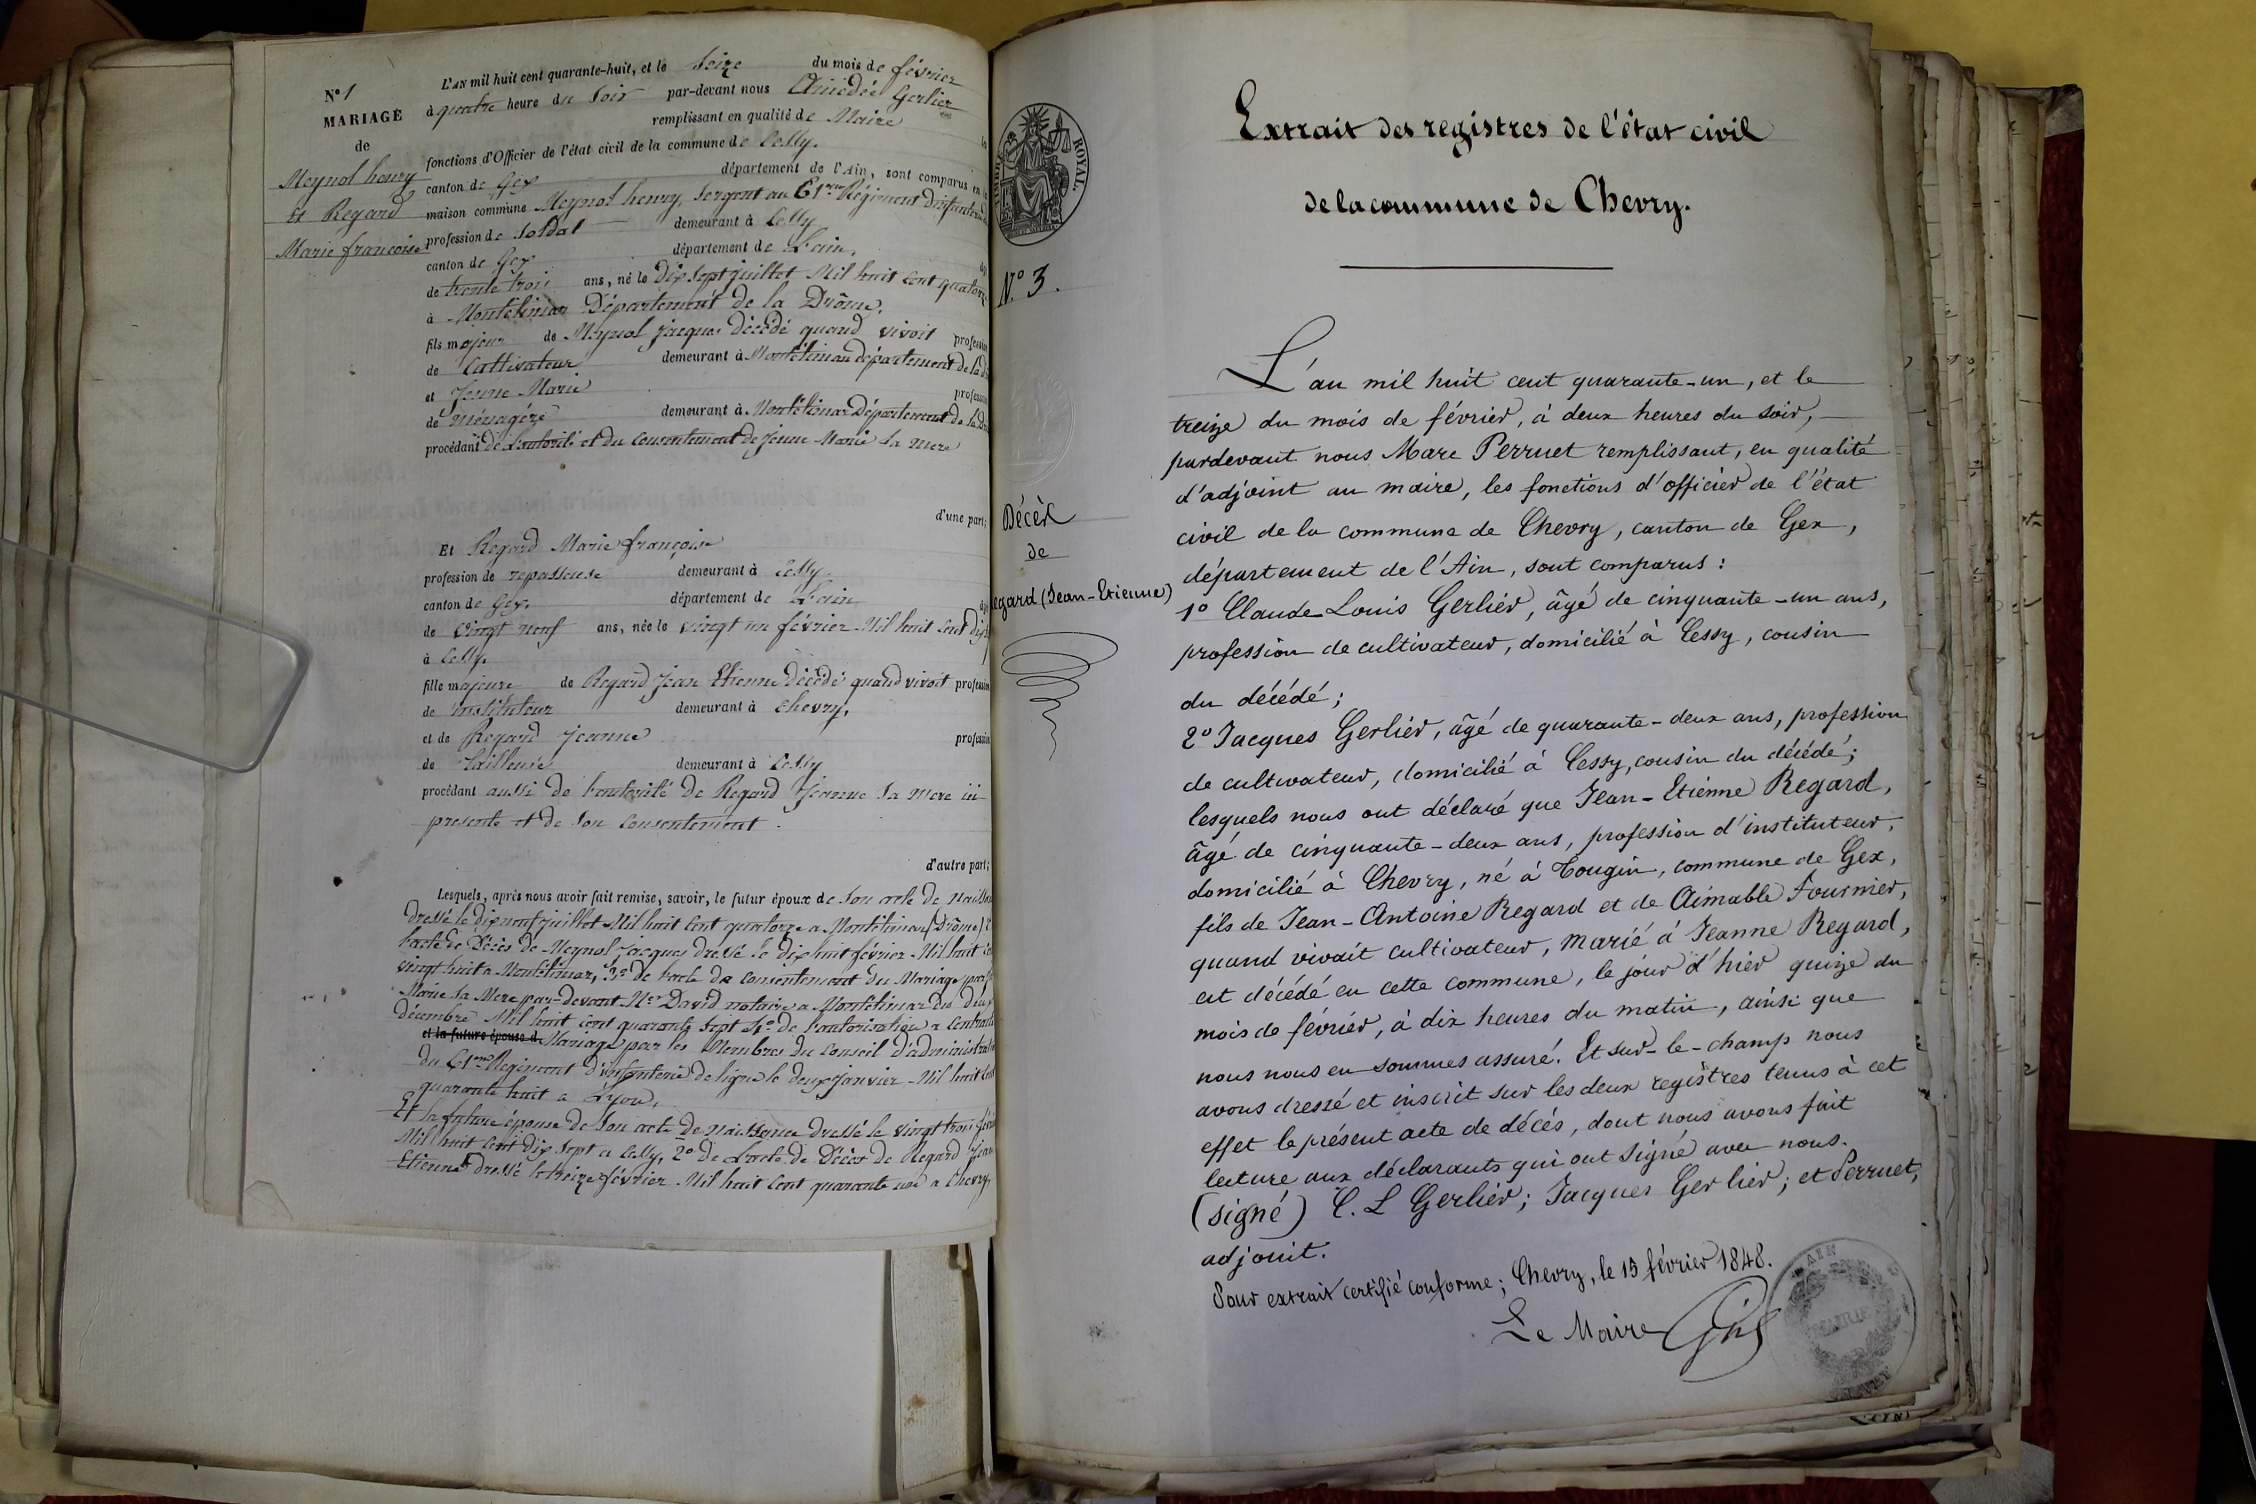 N° 1
MARIAGE
de
Meynol henry
Et Regard
Marie francoise
L'AN mil huit cent quarante-huit, et le Seize du mois de février
à quatre heure du Soir par-devant nous Amédée Gerlier
remplissant en qualité de Maire
fonctions d'Officier de l'état civil de la commune de Cessy.
canton de Gex département de l'Ain, sont comparus en la
maison commune Meynol henry, Sergent au 61me Régiment d'infanterie
profession de Soldat demeurant à Cessy
canton de Gex département de L'ain,
de trente trois ans, né le Dix Sept juillet Mil huit Cent quatorze
à Montélimar Département de la Drôme.
fils majeur de Meynol Jacques Décédé quand vivoit profession
de Cultivateur demeurant à Montélimar département de la D
et Jeune Marie profession
de Ménagère demeurant à Montélimar Département de la D
procédant de L'autorité et du Consentement de Jeune Marie Sa Mere
d'une part;
Et Regard Marie françoise
profession de repasseuse demeurant à Cessy.
canton de Gex. département de L'ain
de Vingt neuf ans, née le vingt un février Mil huit Cent dix
à Cessy.
fille majeure de Regard Jean Etienne Décédé quand vivoit profession
de instituteur demeurant à Chevry,
et de Regard Jeanne profession
de Tailleuse demeurant à Cessy
procédant aussi de l'autorité de Regard Jeanne Sa Mere ici
presente et de Son Consentement.
d'autre part;
Lesquels, après nous avoir fait remise, savoir, le futur époux de Son acte de Naissance
Dressé le dix neuf juillet Mil huit Cent quatorze a Montélimar (Drôme) 2°
l'acte de Décès de Meynol Jacques dressé le dix huit février Mil huit Cent
vingt huit a Montélimar, 3° de l'acte de Consentement du Mariage par J
Marie Sa Mere par-devant Mre David notaire a Montélimar du deux
décembre Mil huit cent quarante Sept 4° de l'autorisation a Contracter
et la future épouse de Mariage par les Membres du Conseil d'administration
du 61me Régiment d'infanterie de ligne le deux Janvier Mil huit Cent
quarante huit a Lyon,
Et la future épouse de Son acte de naissance dressé le vingt trois février
Mil huit Cent Dix Sept a Cessy, 2° de L'acte de Décès de Regard Jean
Etienne dressé le treize février Mil huit Cent quarante un a Chevry,
TIMBRE ROYAL.
Extrait des registres de l'état civil
de la commune de Chevry.
N° 3.
Décès
de
Regard (Jean-Etienne)
L'an mil huit cent quarante-un, et le
treize du mois de février, à deux heures du soir,
pardevant nous Marc Perruet remplissant, en qualité
d'adjoint au maire, les fonctions d'officier de l'état
civil de la commune de Chevry, canton de Gex,
département de l'Ain, sont comparus:
1° Claude Louis Gerlier, âgé de cinquante-un ans,
profession de cultivateur, domicilié à Cessy, cousin
du décédé;
2° Jacques Gerlier, âgé de quarante-deux ans, profession
de cultivateur, domicilié à Cessy, cousin du décédé;
lesquels nous ont déclaré que Jean-Etienne Regard,
âgé de cinquante-deux ans, profession d'instituteur,
domicilié à Chevry, né à Tougin, commune de Gex,
fils de Jean-Antoine Regard et de Aimable Fournier,
quand vivait cultivateur, marié à Jeanne Regard,
est décédé en cette commune, le jour d'hier quize du
mois de février, à dix heures du matin, ainsi que
nous nous en sommes assuré. Et sur-le-champ nous
avons dressé et inscrit sur les deux registres tenus à cet
effet le présent acte de décès, dont nous avons fait
lecture aux déclarants qui ont signé avec nous.
(signé) C. L Gerlier; Jacques Gerlier; et Perruet,
adjoint.
Pour extrait certifié conforme; Chevry, le 15 février 1848.
Le Maire
AIN
MAIRIE
CHEVRY